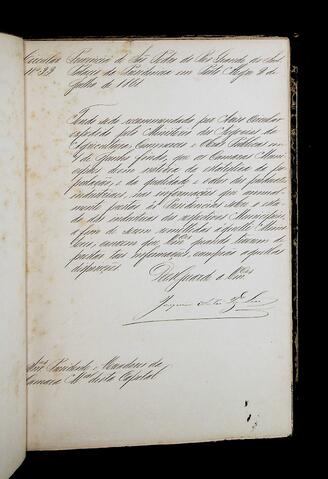 Circular Provincia de São Pedro do Rio Grande do Sul
Nº 33 Palacio da Presidencia em Porto Alegre 2 de
Julho de 1861
Tendo sido recommendado por Aviso Circular
expedido pelo Ministerio dos Negocios da
Agricultura, Commercio e Obras Publicas em
de Junho findo, que as Camaras Muni-
cipaes dem noticia da estatistica da po-
pulação, e da qualidade e valor dos productos
industriaes, nas informações que annual-
mente prestão às Presidencias sobre o esta-
do das industrias dos respectivos Municipios,
a fim de serem remettidas àquelle Minis-
terio, cumpre que Vmces quando tiverem de
prestar taes informações, cumprão aquellas
disposições
Deos Guarde a Vmces
Joaquim
Snres Presidente e Vereadores da
Camara Mal desta Capital